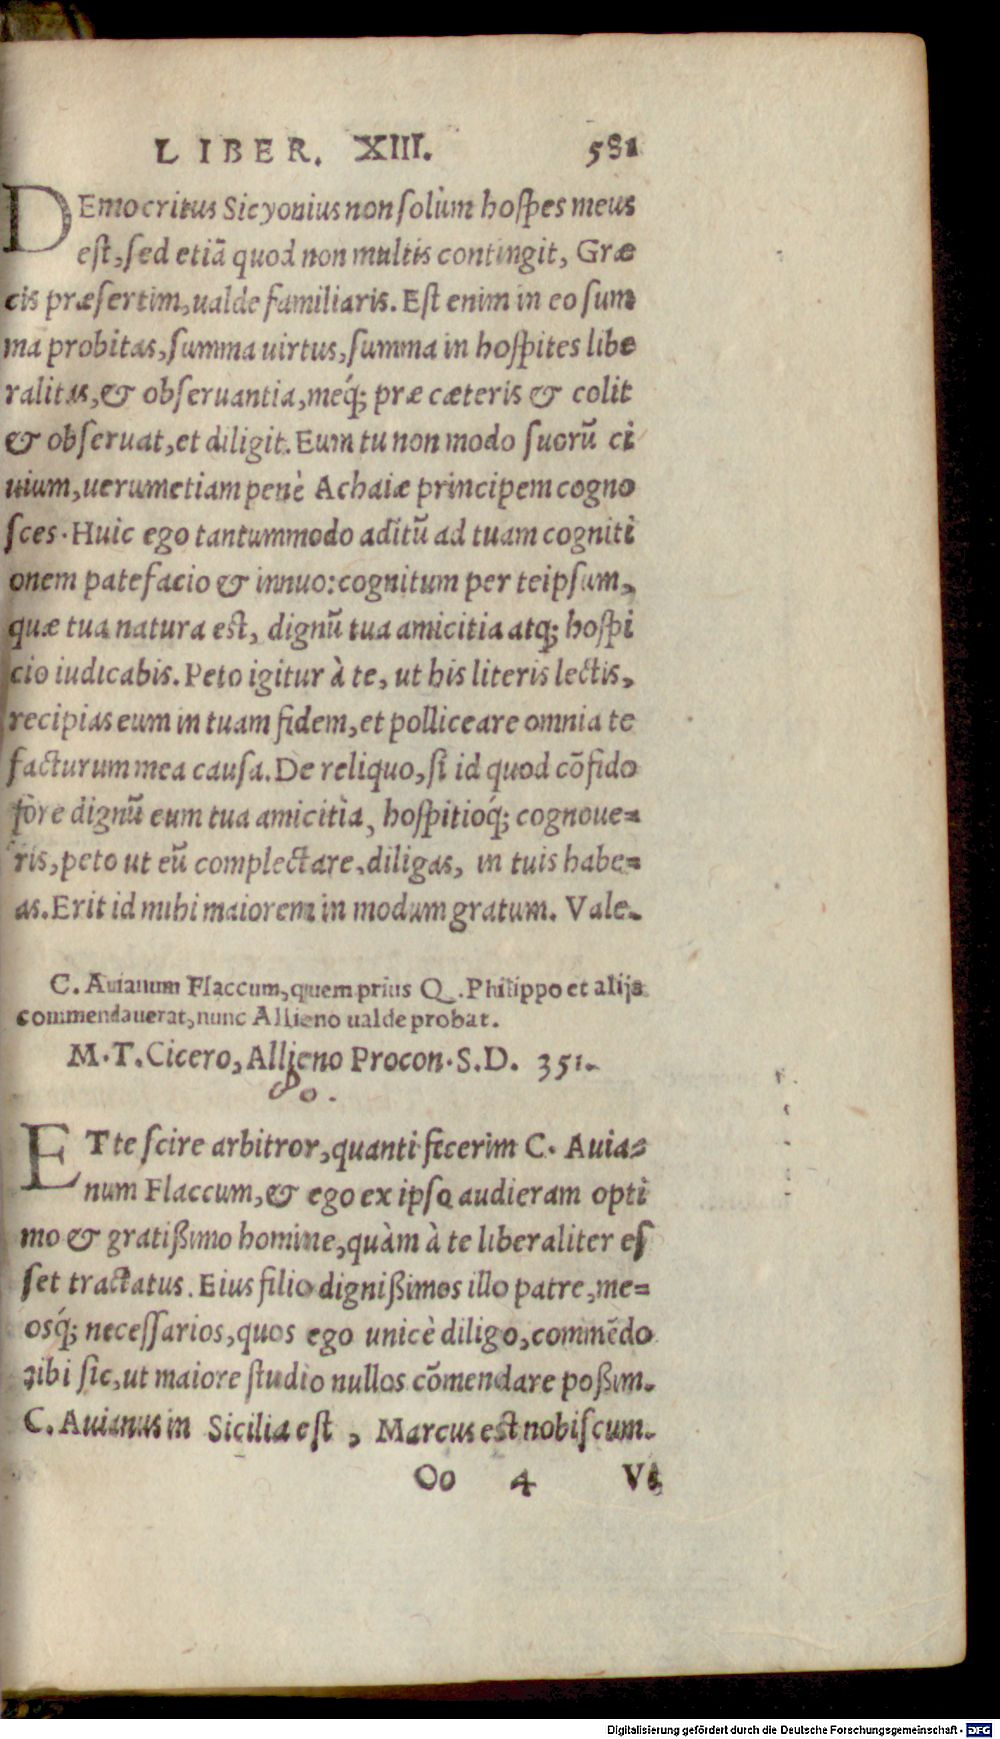 LIBER. XIII. 581
DEmocritus Sicyonius non ſolùm hoſpes meus
eſt, ſed etiā quod non multis contingit, Græ
cis præſertim, ualde familiaris. Eſt enim in eo ſum
ma probitas, ſumma uirtus, ſumma in hoſpites libe
ralitas, & obſeruantia, meq́; præ cæteris & colit
& obſeruat, et diligit. Eum tu non modo ſuorū ci
uium, uerumetiam penè Achaiæ principem cogno
ſces. Huic ego tantummodo aditū ad tuam cogniti
onem patefacio & innuo: cognitum per teipſum,
quæ tua natura est, dignū tua amicitia atq; hoſpi
cio iudicabis. Peto igitur à te, ut his literis lectis,
recipias eum in tuam fidem, et polliceare omnia te
facturum mea cauſa. De reliquo, ſi id quod cōfido
fore dignū eum tua amicitia, hoſpitioq́; cognoue=
ris, peto ut eū complectare, diligas, in tuis habe=
as. Erit id mihi maiorem in modum gratum. Vale.
C. Auianum Flaccum, quem prius Q. Philippo et alijs
commendauerat, nunc Allieno ualde probat.
M. T. Cicero, Allieno Procon. S. D. 351.
ETte ſcire arbitror, quanti fecerim C. Auia=
num Flaccum, & ego ex ipſo audieram opti
mo & gratißimo homine, quàm à te liberaliter eſ
ſet tractatus. Eius filio dignißimos illo patre, me=
osq́; neceſſarios, quos ego unicè diligo, commēdo
tibi ſic, ut maiore ſtudio nullos cōmendare poßim.
C. Auianus in Sicilia eſt, Marcus est nobiſcum.
Oo 4 Vt
Digitalisierung gefördert durch die Deutsche Forschungsgemeinschaft · DFG